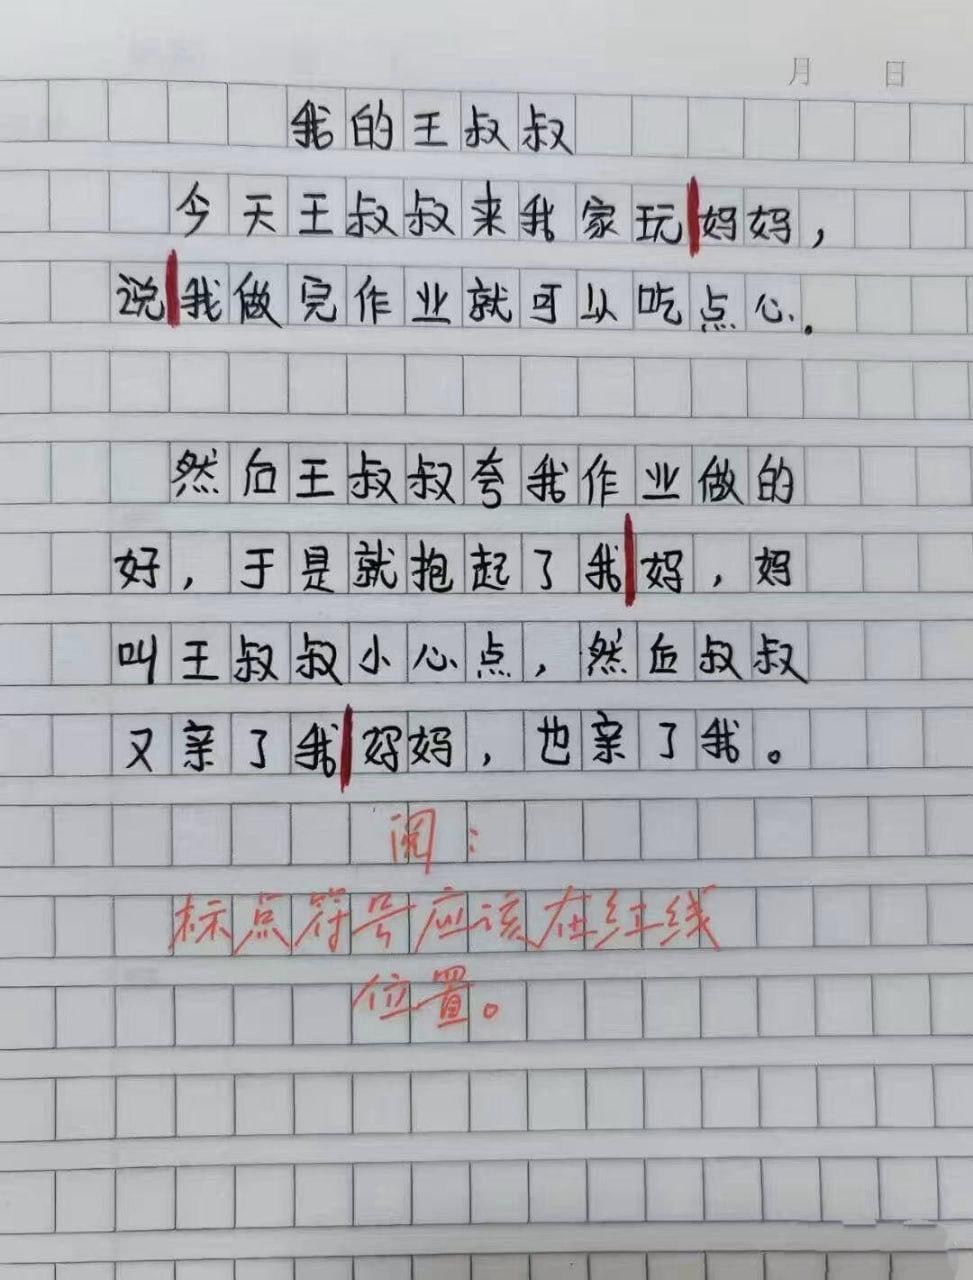 月 日
我的王叔叔
今天王叔叔来我家玩妈妈，
说我做完作业就可以吃点心.
然后王叔叔夸我作业做的
好，于是就抱起了我妈，妈
叫王叔叔小心点，然后叔叔
又亲了我妈妈，也亲了我。
阅：
标点符号应该在红线
位置。